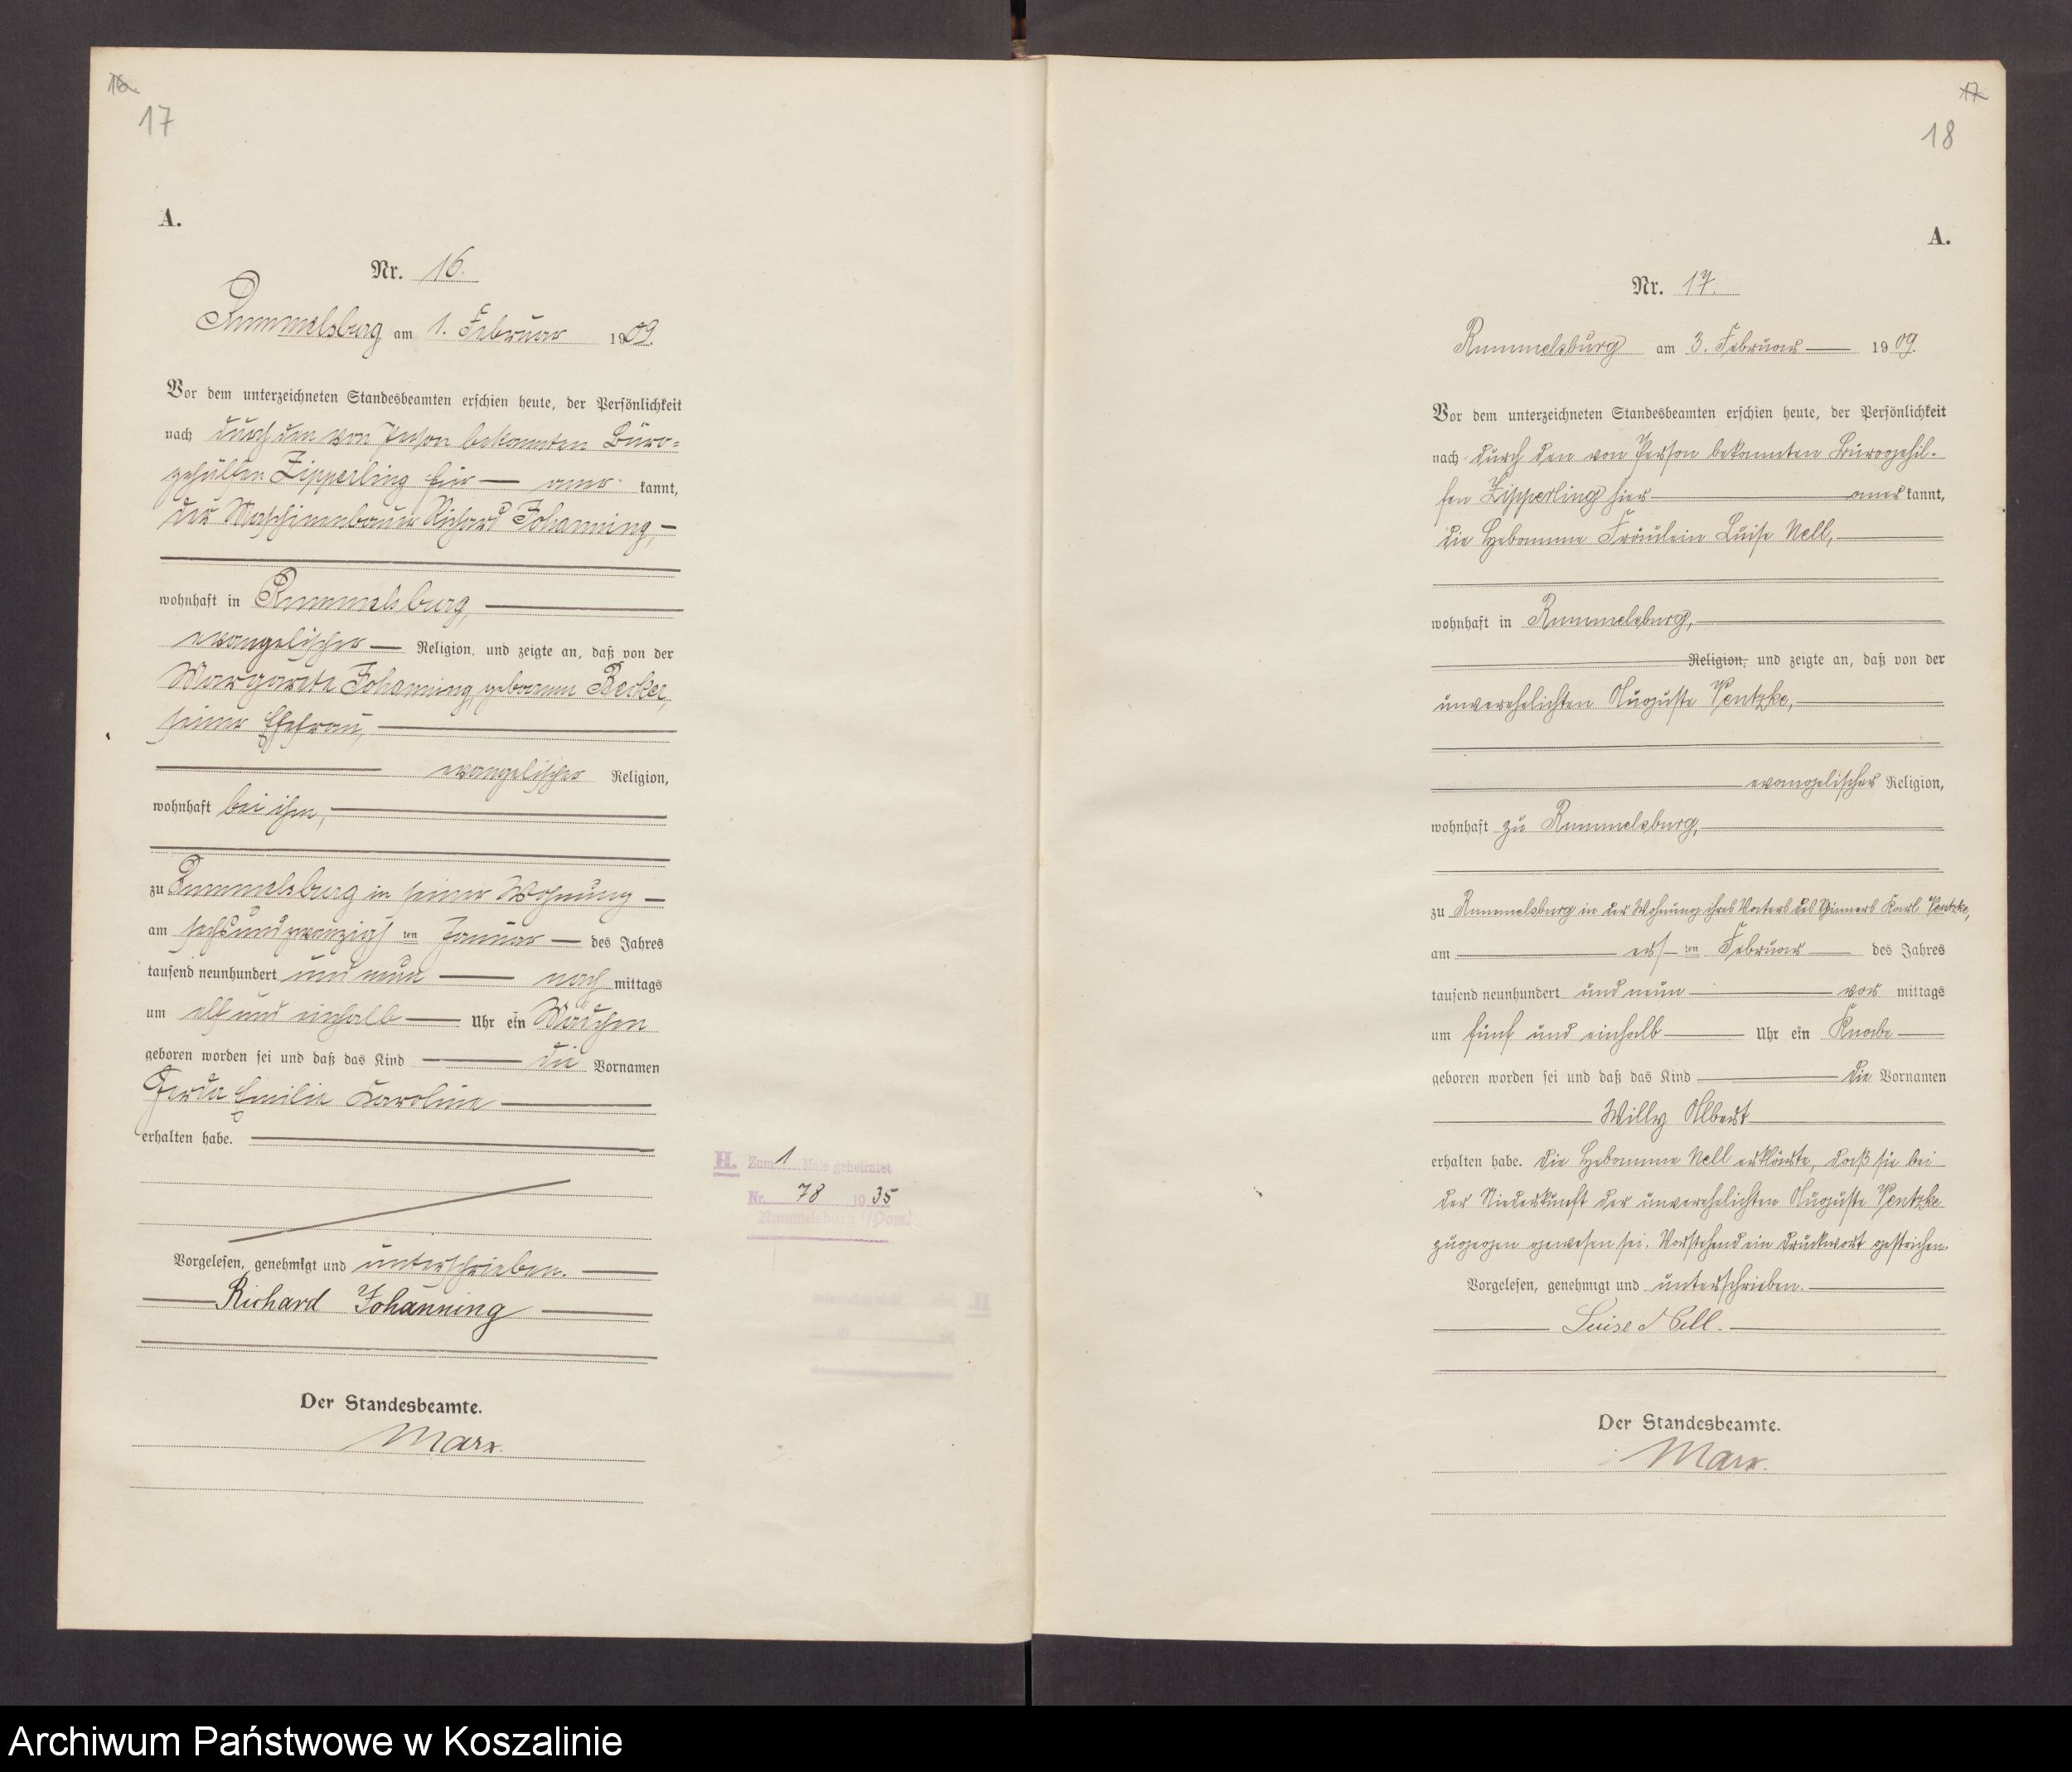 16
17
A.
Nr. 16.
Rummelsburg am 1. Februar 1909.
Vor dem unterzeichneten Standesbeamten erschien heute, der Persönlichkeit
nach durch den von Person bekannten Büro-
gehülfen Zipperling hier — aner kannt,
der Maschinenbauer Richard Johanning, —
wohnhaft in Rummelsburg, —
evangelischer — Religion, und zeigte an, daß von der
Margarete Johanning, geborenen Becker,
seiner Ehefrau, —
— evangelischer Religion,
wohnhaft bei ihm, —
zu Rummelsburg in seiner Wohnung —
am sechsundzwanzigs ten Januar — des Jahres
tausend neunhundert und neun — nach mittags
um elf und einhalb — Uhr ein Mädchen
geboren worden sei und daß das Kind — die Vornamen
Gerda Emilie Karoline —
erhalten habe. —
H. Zum 1 Male geheiratet
Nr. 78 1935
Rummelsburg i/Pom.
Vorgelesen, genehmigt und unterschrieben. —
— Richard Johanning —
Der Standesbeamte.
Marx.
17
18
A.
Nr. 17.
Rummelsburg am 3. Februar — 1909.
Vor dem unterzeichneten Standesbeamten erschien heute, der Persönlichkeit
nach durch den von Person bekannten Bürogehil-
fen Zipperling hier — aner kannt,
die Hebamme Fräulein Luise Nell, —
wohnhaft in Rummelsburg, —
— Religion, und zeigte an, daß von der
unverehelichten Auguste Ventzke, —
— evangelischer Religion,
wohnhaft zu Rummelsburg, —
zu Rummelsburg in der Wohnung ihres Vaters des Spinners Karl Ventzke,
am — ers — ten Februar — des Jahres
tausend neunhundert und neun — vor mittags
um fünf und einhalb — Uhr ein Knabe —
geboren worden sei und daß das Kind — die Vornamen
— Willy Albert —
erhalten habe. Die Hebamme Nell erklärte, daß sie bei
der Niederkunft der unverehelichten Auguste Ventzke
zugegen gewesen sei. Vorstehend ein Druckwort gestrichen.
Vorgelesen, genehmigt und unterschrieben. —
— Luise Nell. —
Der Standesbeamte.
Marx.
Archiwum Państwowe w Koszalinie